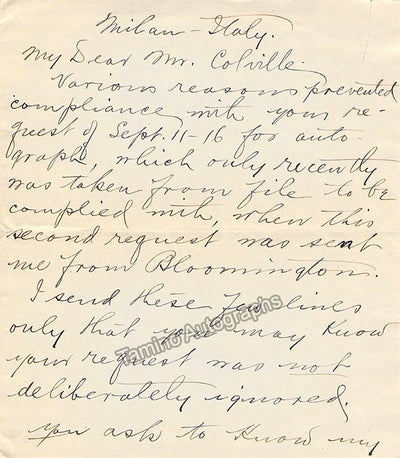 Milan - Italy.
My Dear Mr. Colville.
Various reasons prevented
compliance with your re-
quest of Sept. 11-16 for auto-
graph, which only recently
was taken from file to be
complied with, when this
second request was sent
me from Bloomington.
I send these few lines
only that you may know
Tamino Autographs
your request was not
deliberately ignored.
You ask to know my